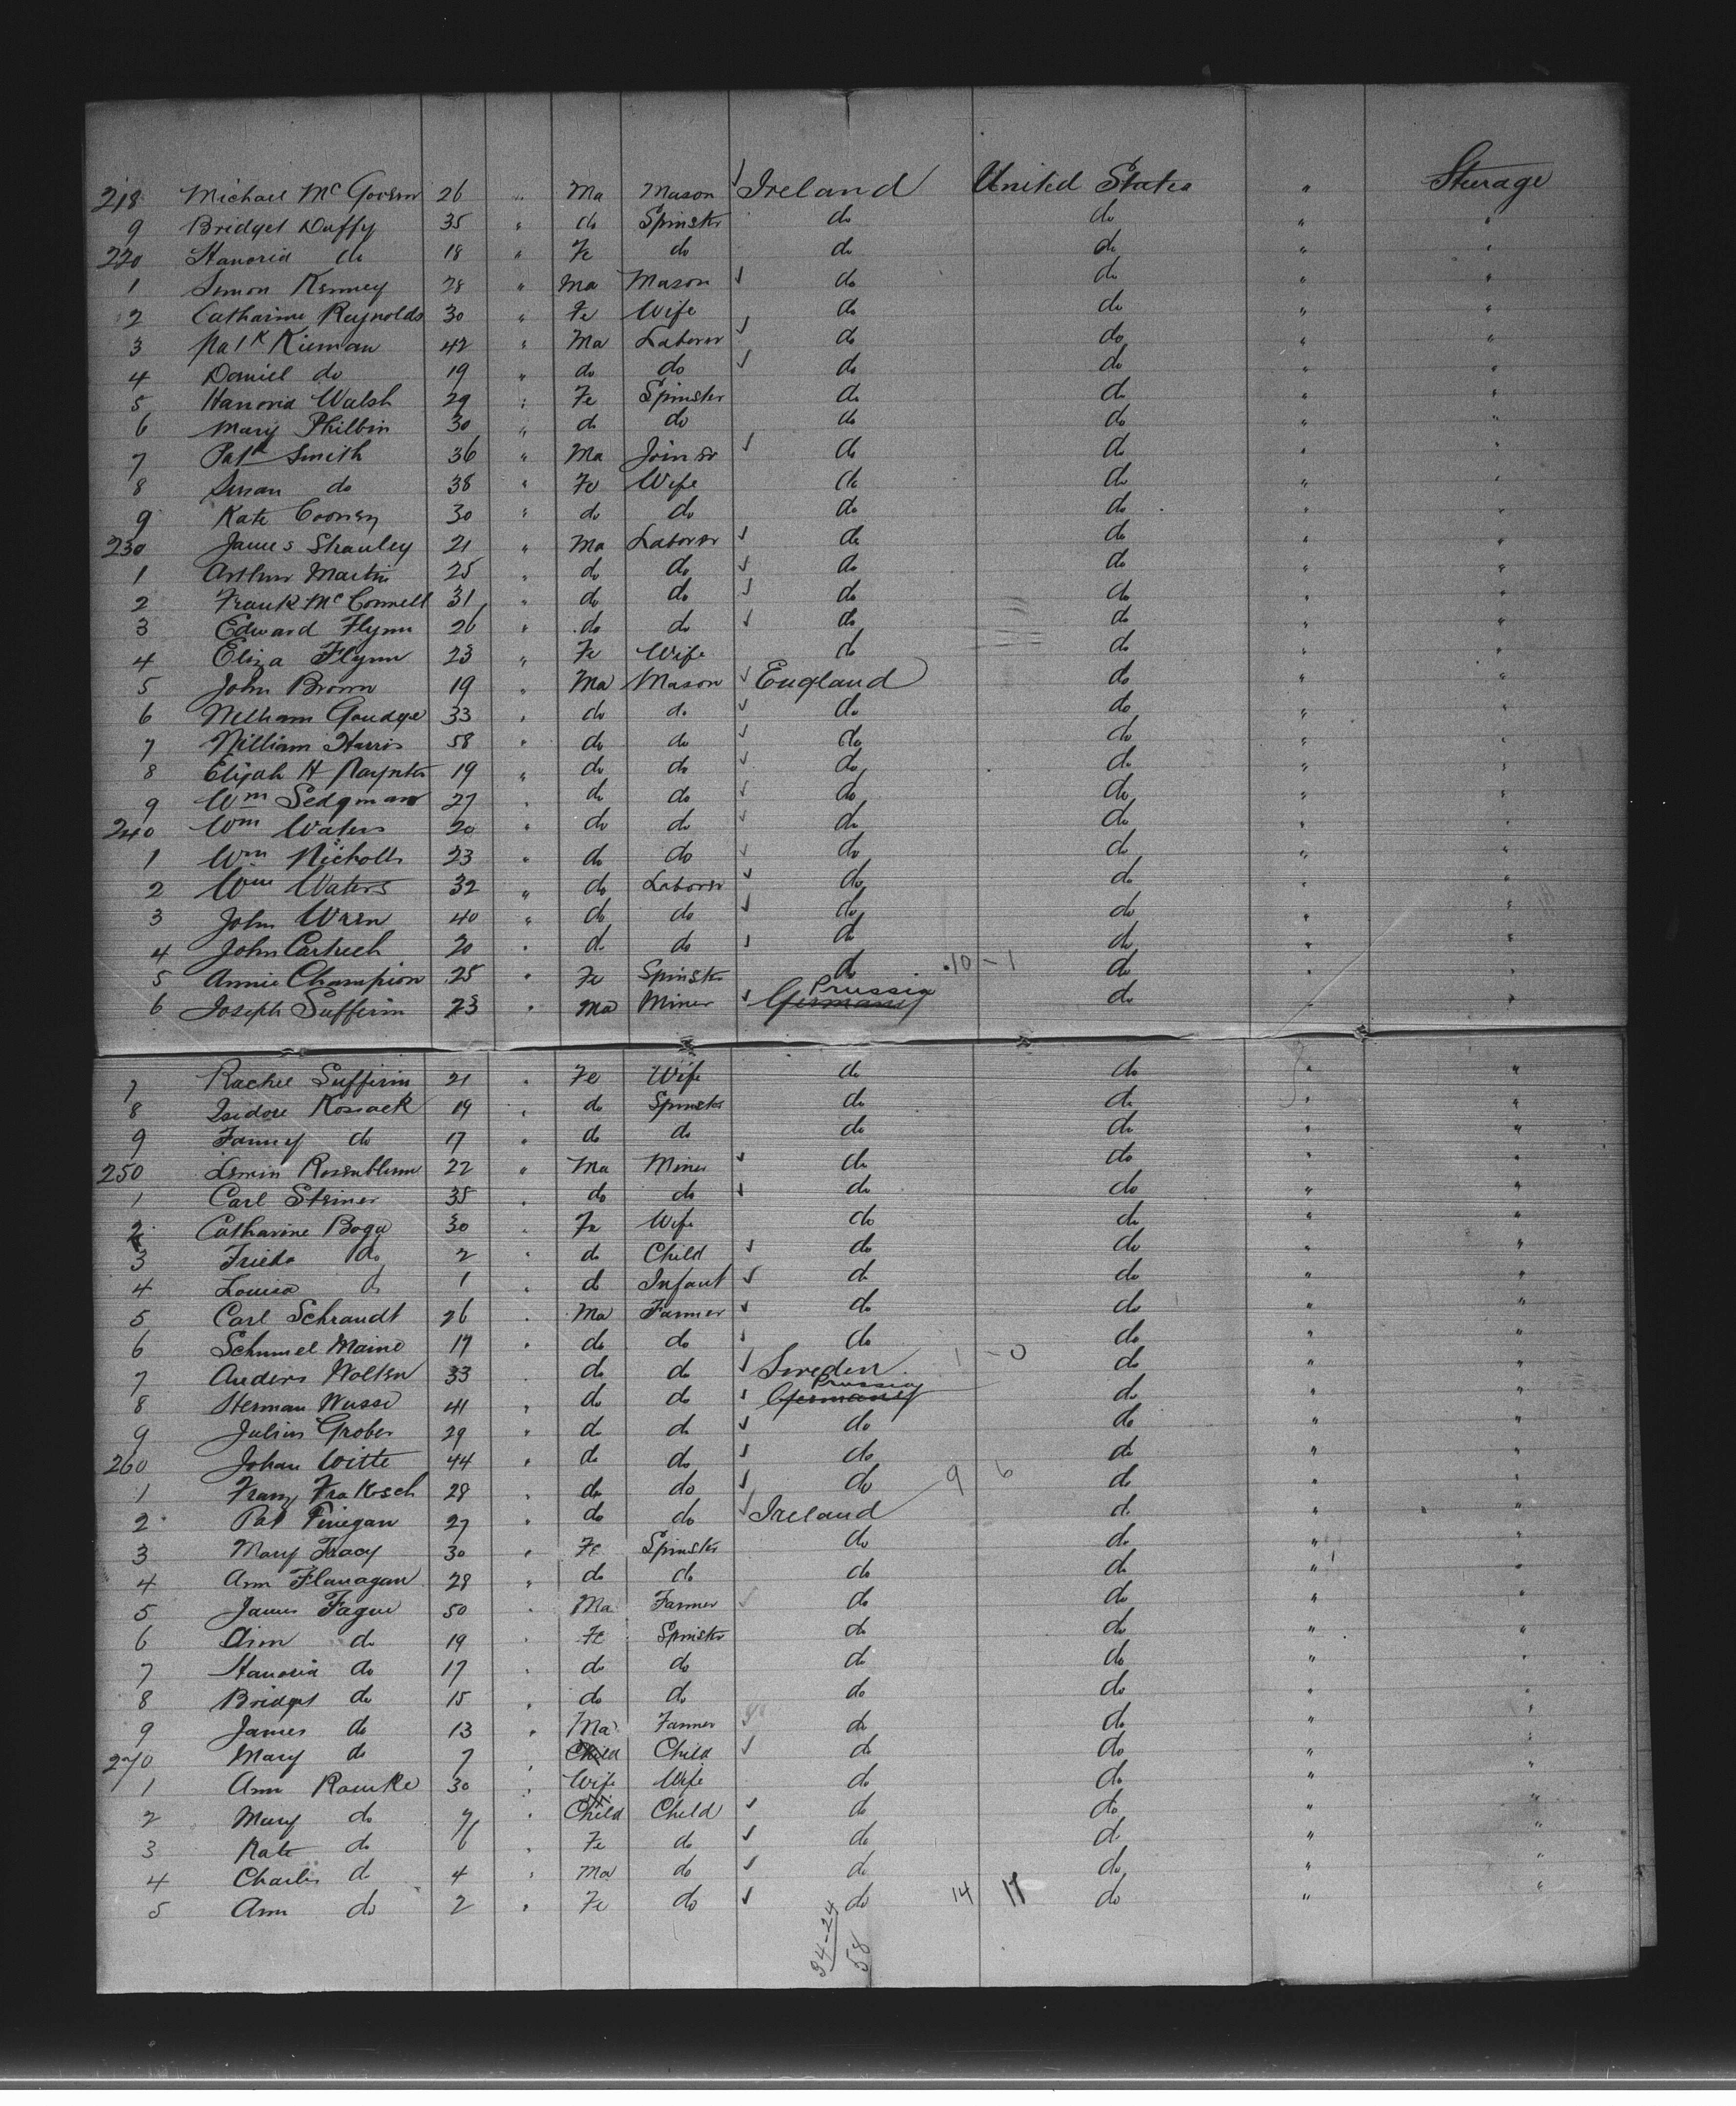 218 Michael McGovern 26 " Ma Mason ✓ Ireland United States " Steerage
9 Bridget Duffy 35 " do Spinster do do " "
220 Hanoria do 18 " Fe do do do " "
1 Simon Kenney 28 " Ma Mason ✓ do do " "
2 Catharine Reynolds 30 " Fe Wife do do " "
3 Patk Kiernan 42 " Ma Laborer ✓ do do " "
4 Daniel do 19 " do do ✓ do do " "
5 Hanoria Walsh 29 " Fe Spinster do do " "
6 Mary Philbin 30 " do do do do " "
7 Patk Smith 36 " Ma Joiner ✓ do do " "
8 Susan do 38 " Fe Wife do do " "
9 Kate Cooney 30 " do do do do " "
230 James Shanley 21 " Ma Laborer ✓ do do " "
1 Arthur Martin 25 " do do ✓ do do " "
2 Frank McConnell 31 " do do ✓ do do " "
3 Edward Flynn 26 " do do ✓ do do " "
4 Eliza Flynn 23 " Fe Wife do do " "
5 John Brown 19 " Ma Mason ✓ England do " "
6 William Goudge 33 " do do ✓ do do " "
7 William Harris 58 " do do ✓ do do " "
8 Elijah H Paynter 19 " do do ✓ do do " "
9 Wm Sedgman 27 " do do ✓ do do " "
240 Wm Waters 20 " do do ✓ do do " "
1 Wm Nicholls 23 " do do ✓ do do " "
2 Wm Waters 32 " do Laborer ✓ do do " "
3 John Wren 40 " do do ✓ do do " "
4 John 20 " do do ✓ do do " "
5 Annie Champion 25 " Fe Spinster do 10 - 1 do " "
6 Joseph Sufferin 23 " Ma Miner ✓ Germany Prussia do " "
7 Rachel Sufferin 21 " Fe Wife do do " "
8 Isidore Kossack 19 " do Spinster do do " "
9 Fanny do 17 " do do do do " "
250 Rosenblum 22 " Ma Miner ✓ do do " "
1 Carl Steiner 35 " do do ✓ do do " "
2 Catharine Boga 30 " Fe Wife do do " "
3 Frieda do 2 " do Child ✓ do do " "
4 Louisa do 1 " do Infant ✓ do do " "
5 Carl Schrandt 26 " Ma Farmer ✓ do do " "
6 Schumel Maine 17 " do do ✓ do do " "
7 Anders Wolten 33 " do do ✓ Sweden 1 - 0 do " "
8 Herman Wusse 41 " do do ✓ Germany Prussia do " "
9 Julius Grober 29 " do do ✓ do do " "
260 Johan Witte 44 " do do ✓ do do " "
1 Franz 28 " do do ✓ do 9 6 do " "
2 Pat Finegan 27 " do do ✓ Ireland do " "
3 Mary Tracy 30 " Fe Spinster do do " "
4 Ann Flanagan 28 " do do do do " "
5 James Fague 50 " Ma Farmer ✓ do do " "
6 Ann do 19 " Fe Spinster do do " "
7 Hanoria do 17 " do do do do " "
8 Bridget do 15 " do do do do " "
9 James do 13 " Ma Farmer ✓ do do " "
270 Mary do 7 " Child Child ✓ do do " "
1 Ann Rourke 30 " Wife Wife do do " "
2 Mary do 7 " Child Child ✓ do do " "
3 Kate do 6 " Fe do ✓ do do " "
4 Charles do 4 " Ma do ✓ do do " "
5 Ann do 2 " Fe do ✓ do 14 11 do " "
34-24
58